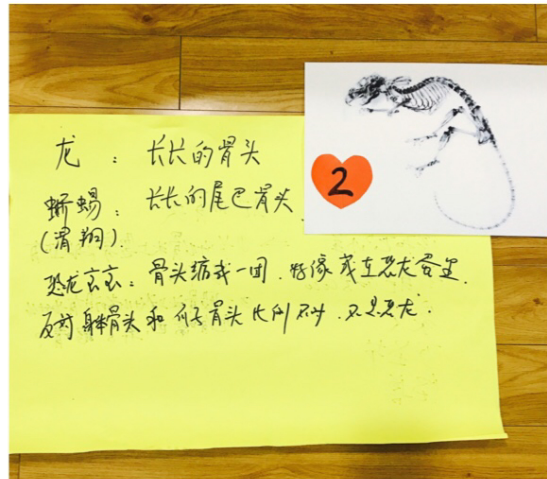 龙：长长的骨头
蜥蜴：长长的尾巴骨头
(滑翔)
恐龙宝宝：骨头缩成一团. 好像成在恐龙蛋里.
反对 身体骨头和 骨头比例不对. 不是恐龙.
2